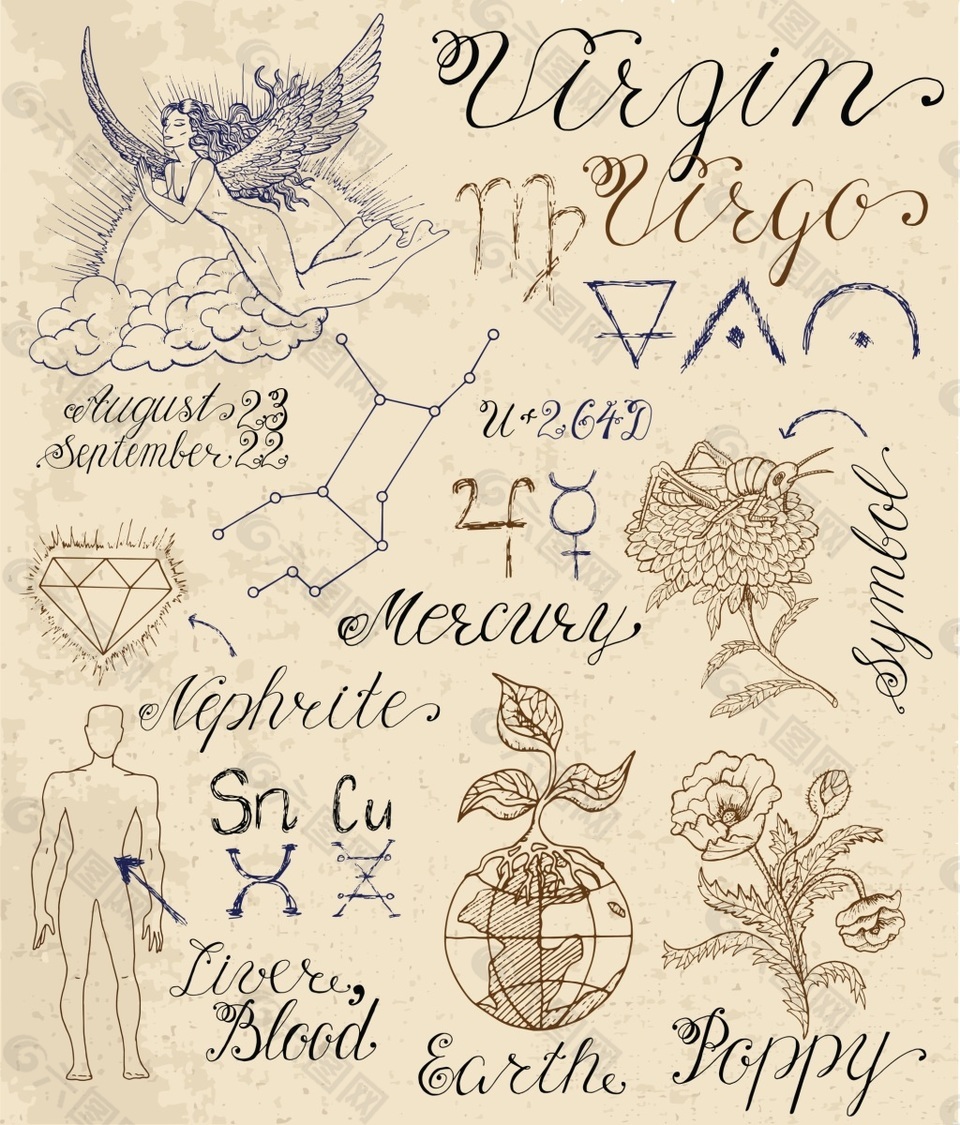 Virgin
Virgo
August 23
September 22
U+264D
Symbol
Mercury
Nephrite
Sn Cu
Liver,
Blood
Earth
Poppy